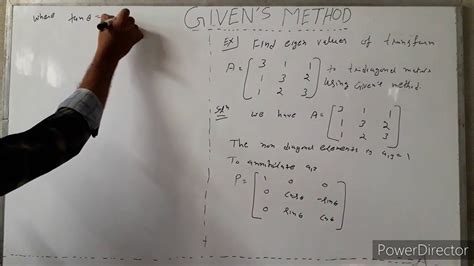 where tan θ =
GIVEN'S METHOD
Ex) Find eigen values of transform
A = [ 3 1 1 ] to tridiagonal matrix
[ 1 3 2 ] using Given's method.
[ 1 2 3 ]
Soln we have A = [ 3 1 1 ]
[ 1 3 2 ]
[ 1 2 3 ]
The non diagonal elements is a13 = 1
To annihilate a13
P = [ 1 0 0 ]
[ 0 cosθ -sinθ ]
[ 0 sinθ cosθ ]
PowerDirector